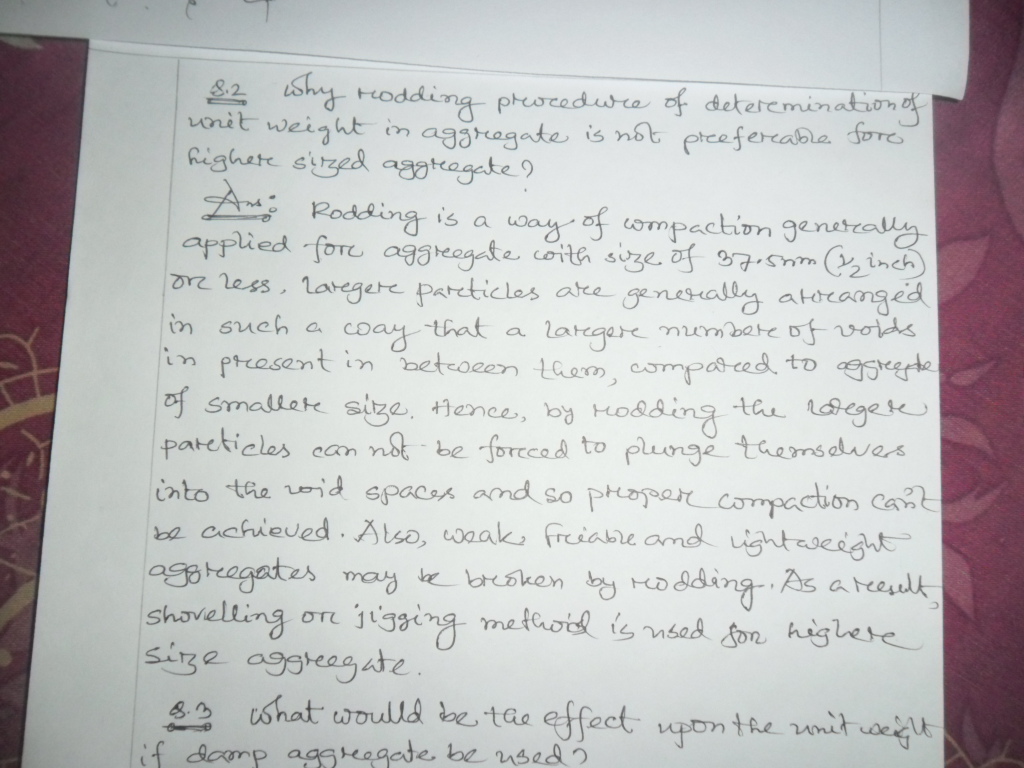 8.2 Why rodding procedure of determination of
unit weight in aggregate is not preferable for
higher sized aggregate?
Ans: Rodding is a way of compaction generally
applied for aggregate with size of 37.5mm (½ inch)
or less. Larger particles are generally arranged
in such a way that a larger number of voids
in present in between them, compared to aggregate
of smaller size. Hence, by rodding the larger
particles can not be forced to plunge themselves
into the void spaces and so proper compaction can't
be achieved. Also, weak, friable and lightweight
aggregates may be broken by rodding. As a result,
shovelling or jigging method is used for higher
size aggregate.
8.3 What woulld be the effect upon the unit weight
if damp aggregate be used?